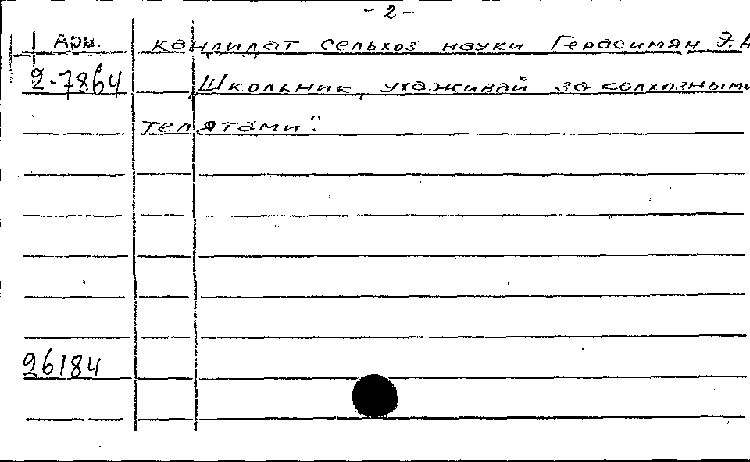 - 2 -
Арм. кандидат сельхоз науки Герасимян Э.А
2-7864 „Школьник, ухаживай за колхозными
телятами".
26184